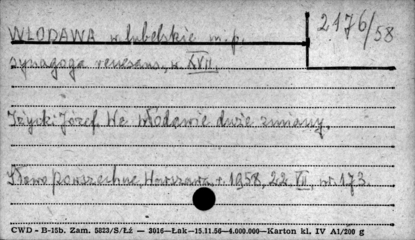 2176/58
WŁODAWA w. lubelskie m. p.
synagoga renesans, w. XVII.
Iżycki Józef. We Włodawie dwie zmiany.
Słowo powszechne, Warszawa r. 1958, 22 VII, nr. 173.
CWD - B-15b. Zam. 5823/S/Łż — 2016—Łak—15.11.56—4.000.000—Karton kl. IV A1/200 g